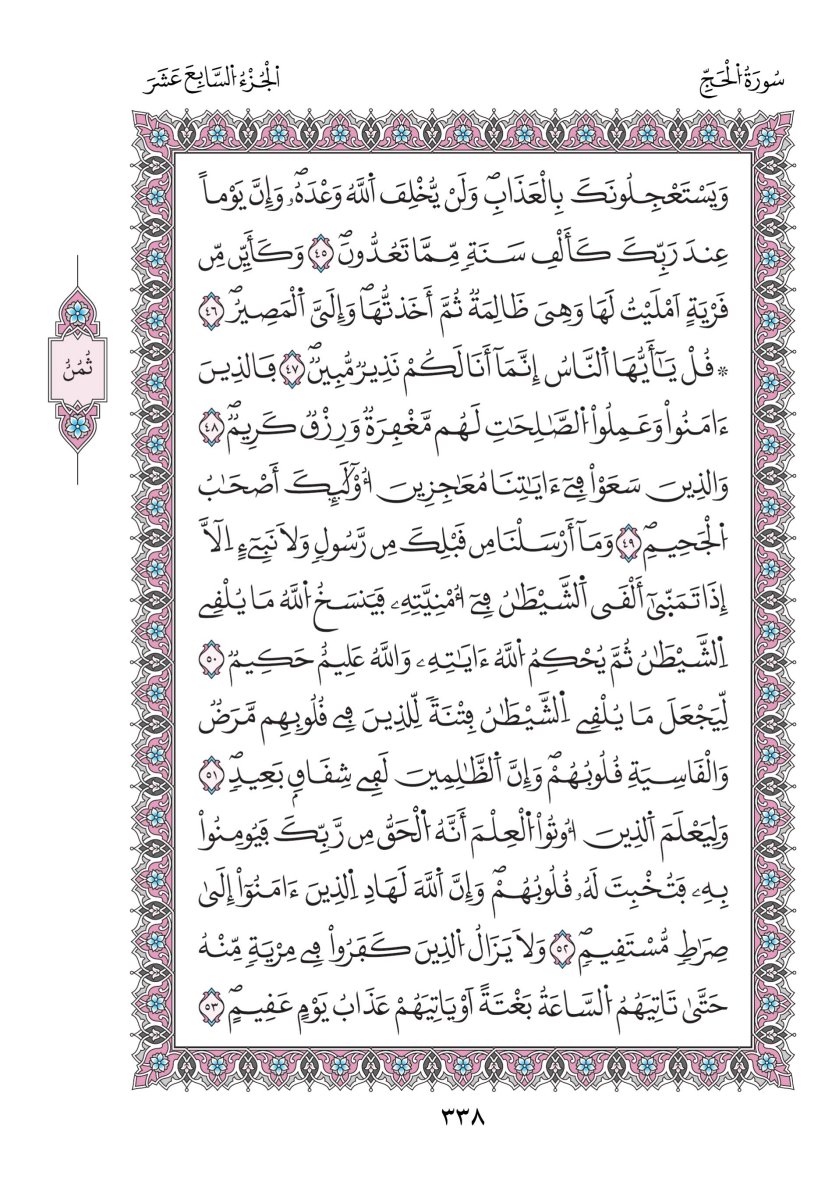 سُورَةُ اُ۬لْحَجِّ
اُ۬لْجُزْءُ اُ۬لسَّابِعَ عَشَرَ
وَيَسْتَعْجِلُونَكَ بِالْعَذَابِۖ وَلَنْ يُّخْلِفَ اَ۬للَّهُ وَعْدَهُۥۖ وَإِنَّ يَوْماً
عِندَ رَبِّكَ كَأَلْفِ سَنَةٖ مِّمَّا تَعُدُّونَۖ ٤٥ وَكَأَيِّن مِّن
قَرْيَةٍ اَمْلَيْتُ لَهَا وَهِيَ ظَالِمَةٞ ثُمَّ أَخَذتُّهَاۖ وَإِلَيَّ اَ۬لْمَصِيرُۖ ٤٦
۞ قُلْ يَٰٓأَيُّهَا اَ۬لنَّاسُ إِنَّمَآ أَنَا لَكُمْ نَذِيرٞ مُّبِينٞۖ ٤٧ فَالذِينَ
ءَامَنُواْ وَعَمِلُواْ اُ۬لصَّٰلِحَٰتِ لَهُم مَّغْفِرَةٞ وَرِزْقٞ كَرِيمٞۖ ٤٨
وَالذِينَ سَعَوْاْ فِےٓ ءَايَٰتِنَا مُعَٰجِزِينَ أُوْلَٰٓئِكَ أَصْحَٰبُ
اُ۬لْجَحِيمِۖ ٤٩ وَمَآ أَرْسَلْنَا مِن قَبْلِكَ مِن رَّسُولٖ وَلَا نَبِےٓءٍ اِلَّآ
إِذَا تَمَنّ۪ىٰٓ أَلْقَى اَ۬لشَّيْطَٰنُ فِےٓ أُمْنِيَّتِهِۦ فَيَنسَخُ اُ۬للَّهُ مَا يُلْقِے
اِ۬لشَّيْطَٰنُ ثُمَّ يُحْكِمُ اُ۬للَّهُ ءَايَٰتِهِۦ وَاللَّهُ عَلِيمٌ حَكِيمٞ ٥٠
لِّيَجْعَلَ مَا يُلْقِے اِ۬لشَّيْطَٰنُ فِتْنَةٗ لِّلذِينَ فِے قُلُوبِهِم مَّرَضٞ
وَالْقَاسِيَةِ قُلُوبُهُمْۖ وَإِنَّ اَ۬لظَّٰلِمِينَ لَفِے شِقَاقِۢ بَعِيدٖۖ ٥١
وَلِيَعْلَمَ اَ۬لذِينَ أُوتُواْ اُ۬لْعِلْمَ أَنَّهُ اُ۬لْحَقُّ مِن رَّبِّكَ فَيُومِنُواْ
بِهِۦ فَتُخْبِتَ لَهُۥ قُلُوبُهُمْۖ وَإِنَّ اَ۬للَّهَ لَهَادِ اِ۬لذِينَ ءَامَنُوٓاْ إِلَىٰ
صِرَٰطٖ مُّسْتَقِيمٖۖ ٥٢ وَلَا يَزَالُ اُ۬لذِينَ كَفَرُواْ فِے مِرْيَةٖ مِّنْهُ
حَتَّىٰ تَاتِيَهُمُ اُ۬لسَّاعَةُ بَغْتَةً اَوْ يَاتِيَهُمْ عَذَابُ يَوْمٍ عَقِيمٍۖ ٥٣
ثُمُنُ
٣٣٨